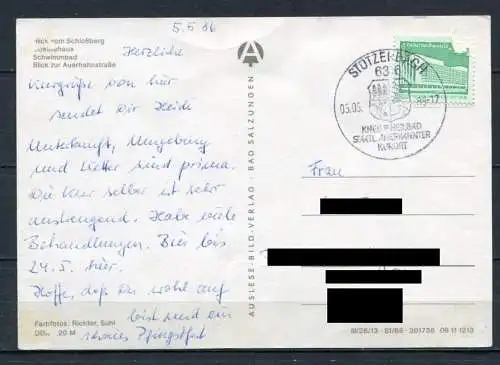 5.5.86
Blick vom Schloßberg
Kulturhaus
Schwimmbad
Blick zur Auerhahnstraße
Herzliche
Kurgrüße von hier
sendet Dir Heidi
Unterkunft, Umgebung
und Wetter sind prima.
Die Kur selber ist sehr
anstrengend. Habe viele
Behandlungen. Bin bis
24.5. hier.
Hoffe, daß Du wohl auf
bist und ein
schönes Pfingstfest
Farbfotos: Richter, Suhl
20 M
A
AUSLESE-BILD-VERLAG · BAD SALZUNGEN
STÜTZERBACH
636
05.05.
-12
KNEIPP-HEILBAD
STAATL. ANERKANNTER
KURORT
Frau
III/26/13 · 81/86 · 301756 09 11 1213